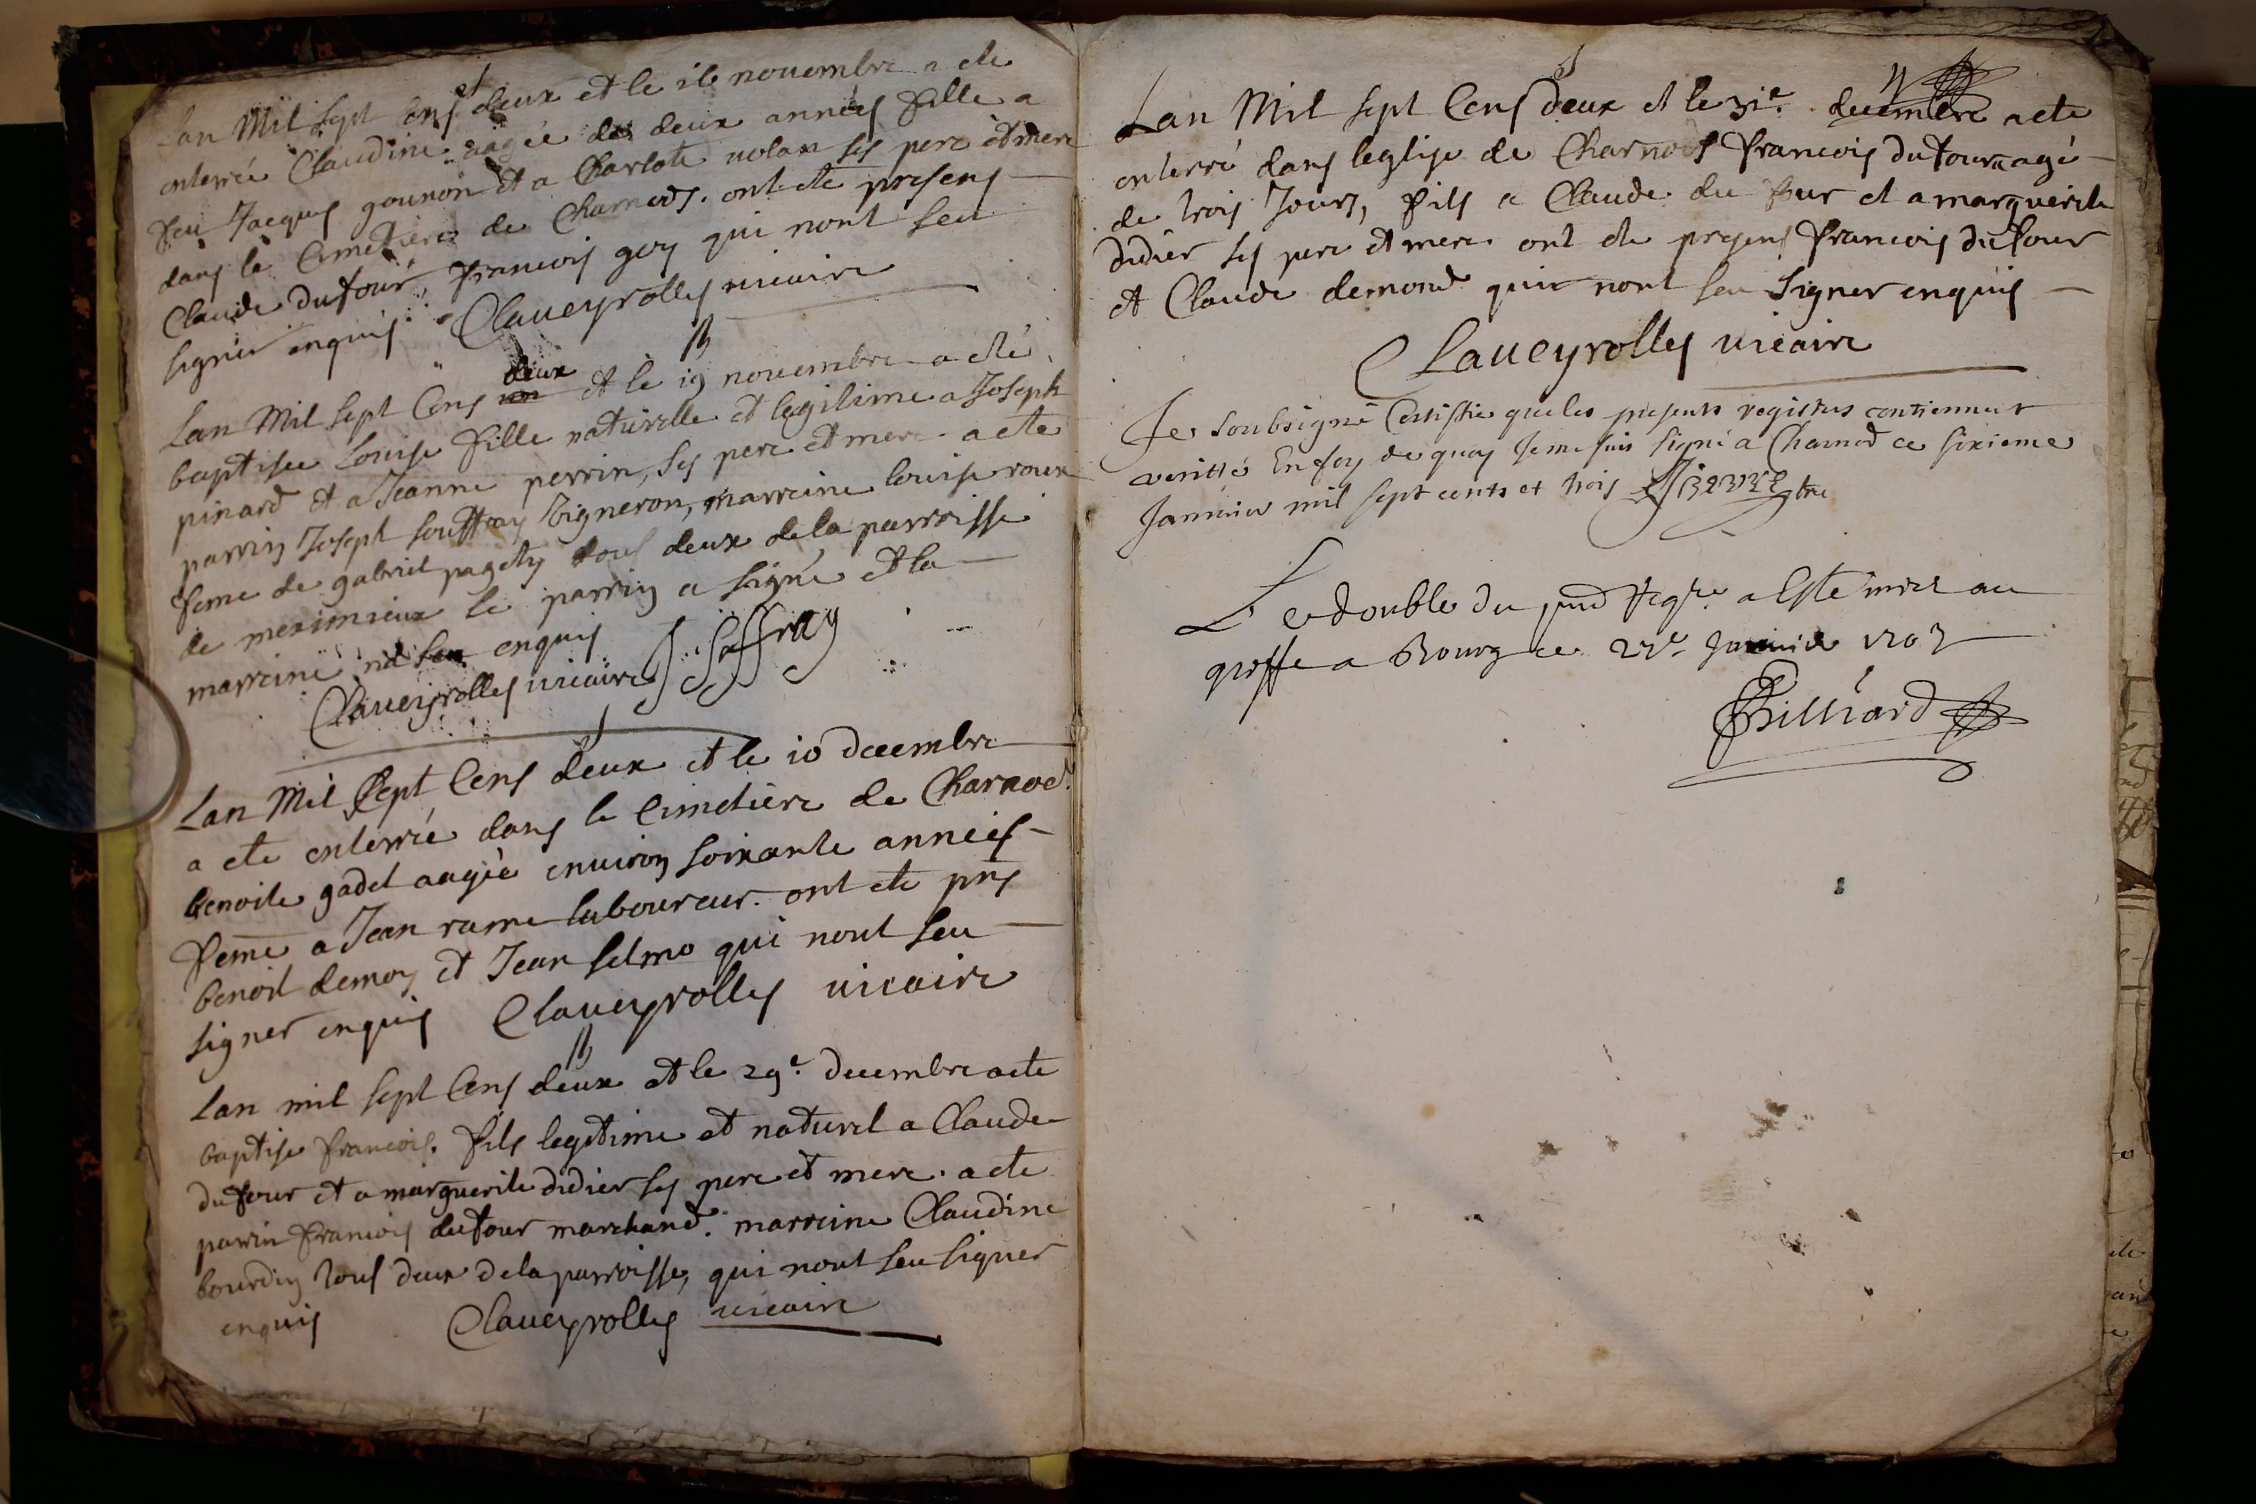 Lan Mil sept cens deux et le 16 novembre a ete
enterrée Claudine aagée de deux années fille a
feu Jacques gounon et a Charlote volan ses pere et mere
dans le Cimetiere de Charnods. ont ete presens
Claude dufour, francois goy qui nont seu
signer enquis. Claveyrolles vicaire
B
Lan Mil sept Cens deux et le 19 novembre a eté
baptisee Louise fille naturelle et legitime a Joseph
pinard et a Jeanne perrin, ses pere et mere. a ete
parrin Joseph Vigneron, marreine louise roux
feme de gabriel pagety tous deux de la parroisse
de meximieux le parrin a signé et la
marreine na seu enquis
Claveyrolles vicaire J Soffray
Lan Mil sept Cens deux et le 10 decembre
a ete enterrée dans le Cimetiere de Charnod.
benoite gadel aagée environ soixante années
feme a Jean rame laboureur. ont ete pns
benoit demon et Jean selmo qui nont seu
signer enquis Claveyrolles vicaire
B
Lan mil sept Cens deux et le 29e. decembre a ete
baptise francois. fils legitime et naturel a Claude
dufour et a marguerite didier ses pere et mere. a ete
parrin francois dufour marchand. marreine Claudine
bourdin tous deux de la parroisse, qui nont seu signer
enquis Claveyrolles vicaire
Lan Mil sept Cens deux et le 31e. decembre a ete
enterré dans leglise de Charnods francois dufour agé
de trois Jours, fils a Claude du four et a marguerite
didier ses pere et mere. ont ete presens francois dufour
et Claude demond qui nont seu signer enquis
Claveyrolles vicaire
Je soubsigné Certiffie que les presents registres contiennent
veritté En foy de quoy Je me suis signé a Charnod ce sixieme
Janvier mil sept cents et trois
Le double du pnt Regre. a Esté mis au
greffe a Bourg ce 27e Janvier 1703
Billiard